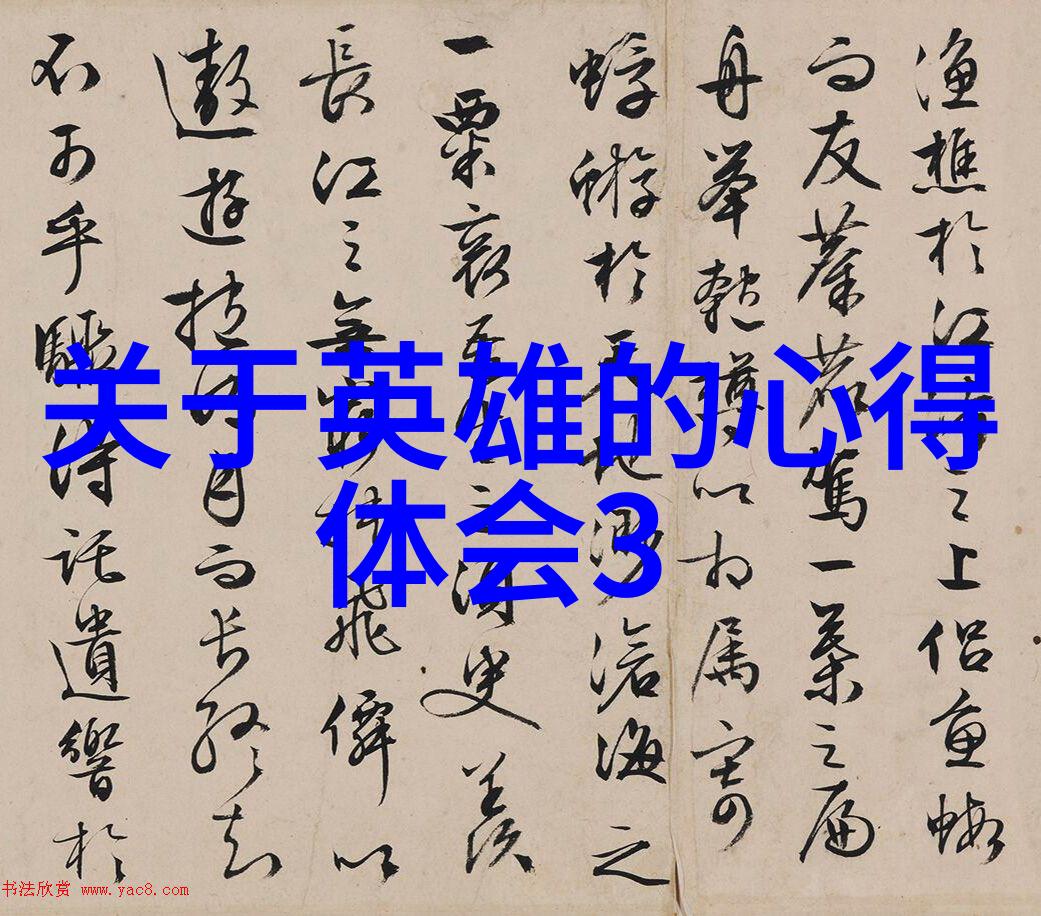 漁樵於江渚之上侣魚蝦
而友麋鹿駕一葉之扁
舟舉匏樽以相属寄
蜉蝣於天地渺滄海之
一粟哀吾生之須臾羨
長江之無窮挾飛僊以
遨遊抱明月而長終知
不可乎驟得託遺響於
关于英雄的心得
体会3
书法欣赏 www.yac8.com